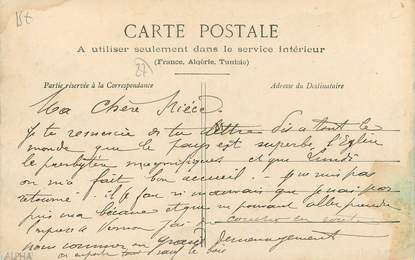 15t
CARTE POSTALE
A utiliser seulement dans le service intérieur
(France, Algérie, Tunisie)
27
Partie réservée à la Correspondance
Adresse du Destinataire
Ma Chère Nièce
Je te remercie de ta lettre Dis à tout le
monde que le pays est superbe, l'Eglise
le presbytère magnifiques et que lundi
on m'a fait bon accueil. Je ne suis pas
retourné. Il fau
pris ma bécane et que ne pouvant aller prendre
à Vernon j'ai
nous sommes en grand demenagement
on emporte tout sauf le bois
ALPHA